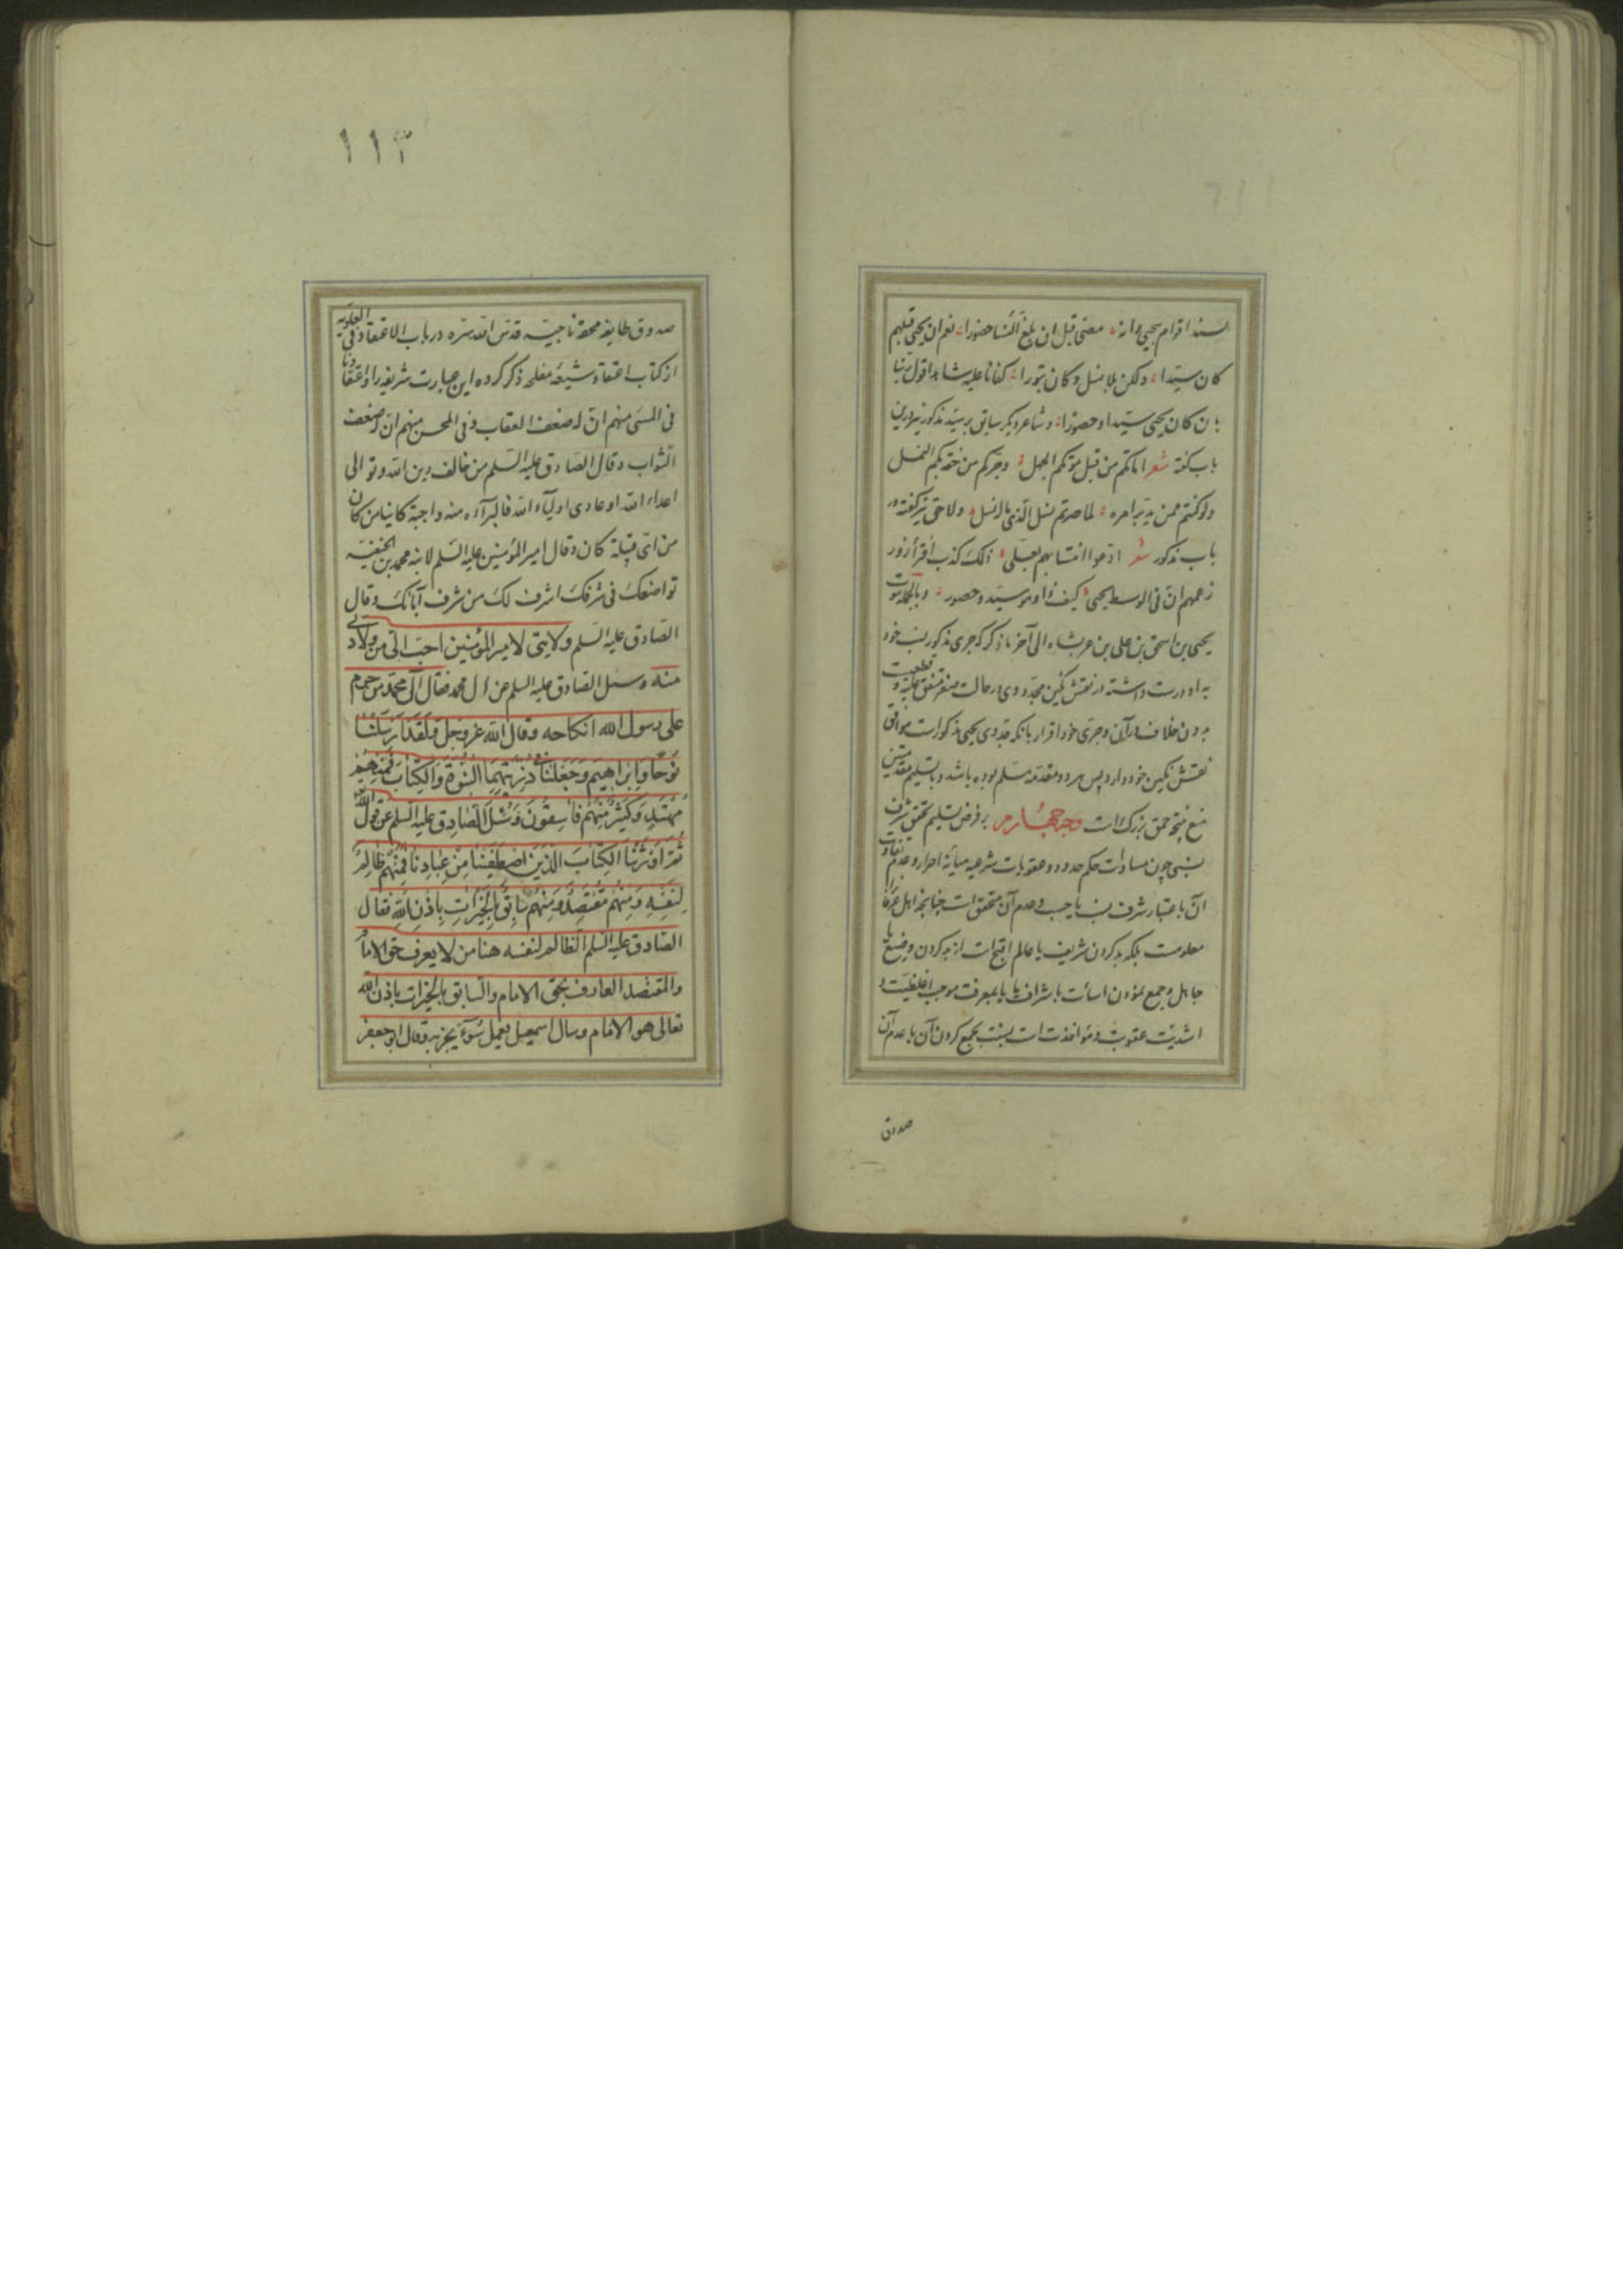 یسند اقوام یحیی وانه مضی قبل ان یبلغ النسا حضورا نعم ان یحیی قبلهم
کان سیدا ولکن بلا نسل وکان بتورا کفانا علیه شاهدا قول ربنا
بان کان یحیی سیدا وحصورا وشاعر دیکر سابق بر سید مذکور نیز درین
باب کفته شعر اماتکم من قبل موتکم الجهل وجرکم من خفتکم النمل
ولو کنتم ممن یدبر امره لما صرتم نسل الذی ماله نسل ولاحقی نیز کفته در
باب مذکور شعر ادعوا انتسابهم لعلی ذلک کذب افترا زور
زعمهم ان فی الوسط یحیی کیف ذا وهو سید وحصور وبالجمله ثبوت
یحیی بن اسحق بن علی بن عربشاه الی آخر ما ذکر که جری مذکور نسب خود
به او درست داشته در نقش نکین مجد دوی در حالت صغر متفق علیه و
بدون خلاف در آن وجری خود اقرار بانکه جد وی یحیی مذکور است موافق
نقش نکین خود دارد پس هر دو مقدمه مسلم بوده باشد و با تسلیم مقدمتین
منع نتیجه حمق بزرک است وجه چهارم بر فرض تسلیم تحقق شرف
نسبی چون مساوات حکم حدود وعقوبات شرعیه میانه احرار وعدم تفاوت
آن باعتبار شرف نسب یا حسب وعدم آن متحقق است چنانچه اهل عرفان را
معلومست بلکه بد کردن شریف یا عالم اقبح است از بد کردن وضیع یا
جاهل وجمع نمودن اسائت با شرافت یا با معرفت موجب اغلظیت و
اشدیت عقوبت ومؤاخذت است نسبت بجمع کردن آن با عدم آن
صدوق
۱۱۳
صدوق طایفه محقه ناجیه قدس الله سره در باب الاعتقاد فی العلویه
از کتاب اعتقاد شیعه مفلحه ذکر کرده این عبارت شریفه را واعتقادنا
فی المسی منهم ان له ضعف العقاب وفی المحسن منهم ان له ضعف
الثواب وقال الصادق علیه السلم من خالف دین الله وتوالی
اعداء الله او عادی اولیاء الله فالبرآءه منه واجبة کائنا من کان
من ای قبیلة کان وقال امیر المؤمنین علیه السلم لابنه محمد بن الحنفیه
تواضعک فی شرفک اشرف لک من شرف آبائک وقال
الصادق علیه السلم ولایتی لامیر المؤمنین احب الی من ولادتی
منه وسئل الصادق علیه السلم عن ال محمد فقال آل محمد من حرم
علی رسول الله انکاحه وقال الله عز وجل ولقد ارسلنا
نوحا وابراهیم وجعلنا فی ذریتهما النبوة والکتاب فمنهم
مهتد وکثیر منهم فاسقون وسئل الصادق علیه السلم عن قول الله
ثم اورثنا الکتاب الذین اصطفینا من عبادنا فمنهم ظالم
لنفسه ومنهم مقتصد ومنهم سابق بالخیرات باذن الله فقال
الصادق علیه السلم الظالم لنفسه هنا من لا یعرف حق الامام
والمقتصد العارف بحق الامام والسابق بالخیرات باذن الله
تعالی هو الامام وسال اسمعیل یعمل سوء یجز به وقال ابو جعفر